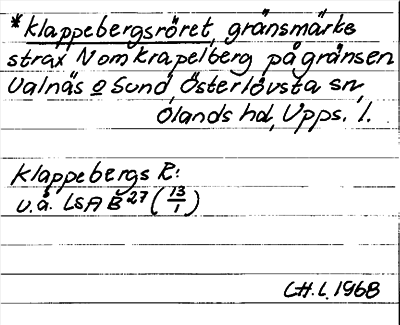 *klappebergsröret, gränsmärke
strax N om Krapelberg på gränsen
Valnäs o Sund, Österlövsta sn,
Olands hd, Upps. l.
Klappebergs R:
u.å. LSA B 27 (13/1)
C.H.L. 1968